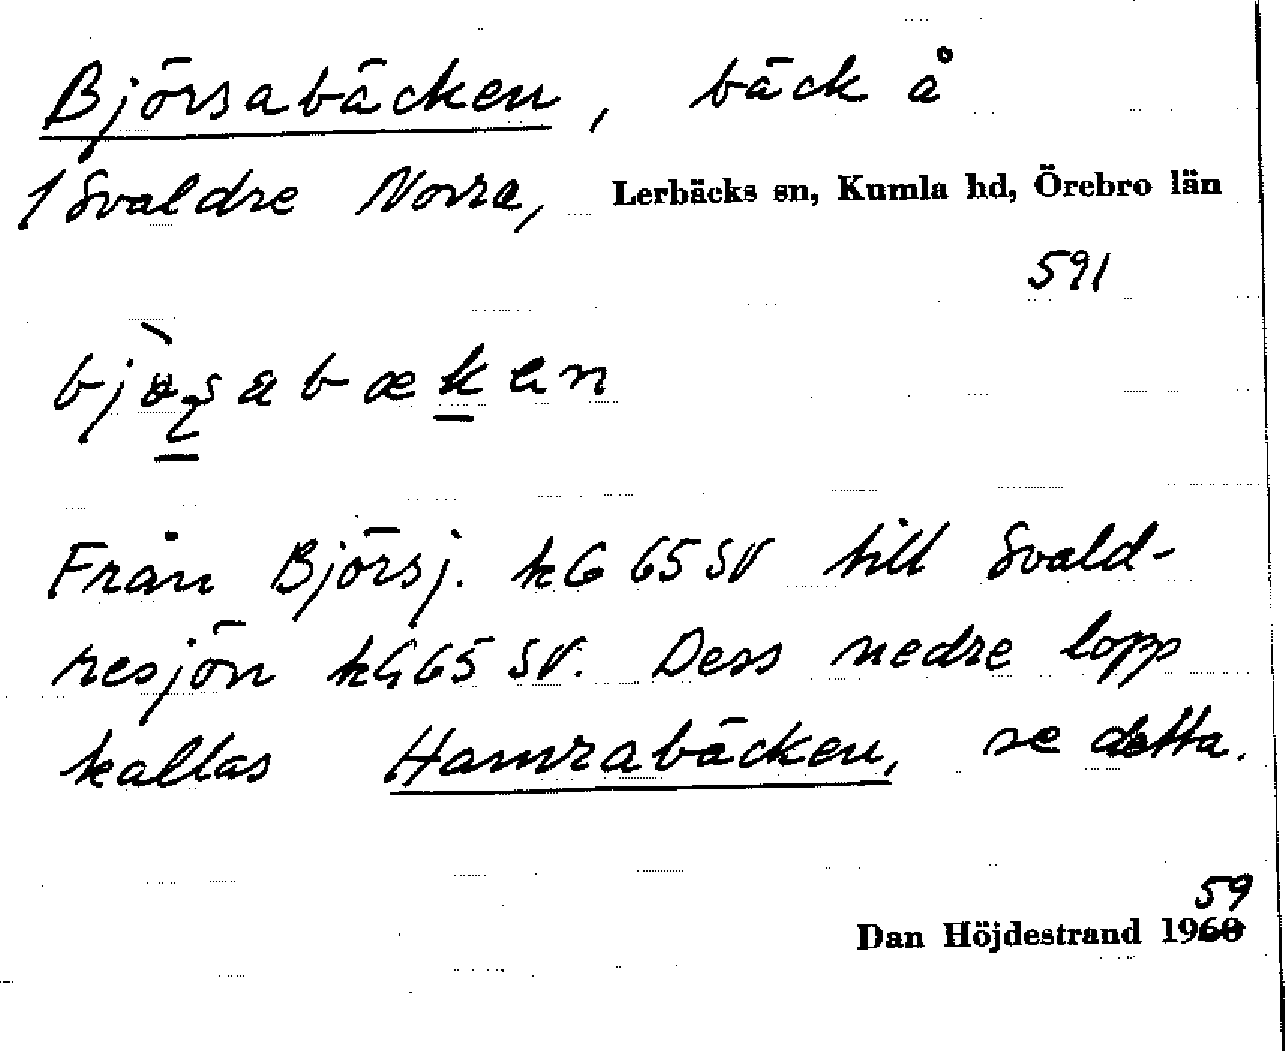 Björsabäcken, bäck å
1 Svaldre Norra, Lerbäcks sn, Kumla hd, Örebro län
591
Från Björsj. kG 65 SV till Svald-
resjön kG 65 SV. Dess nedre lopp
kallas Hamrabäcken, se detta.
59
Dan Höjdestrand 1960